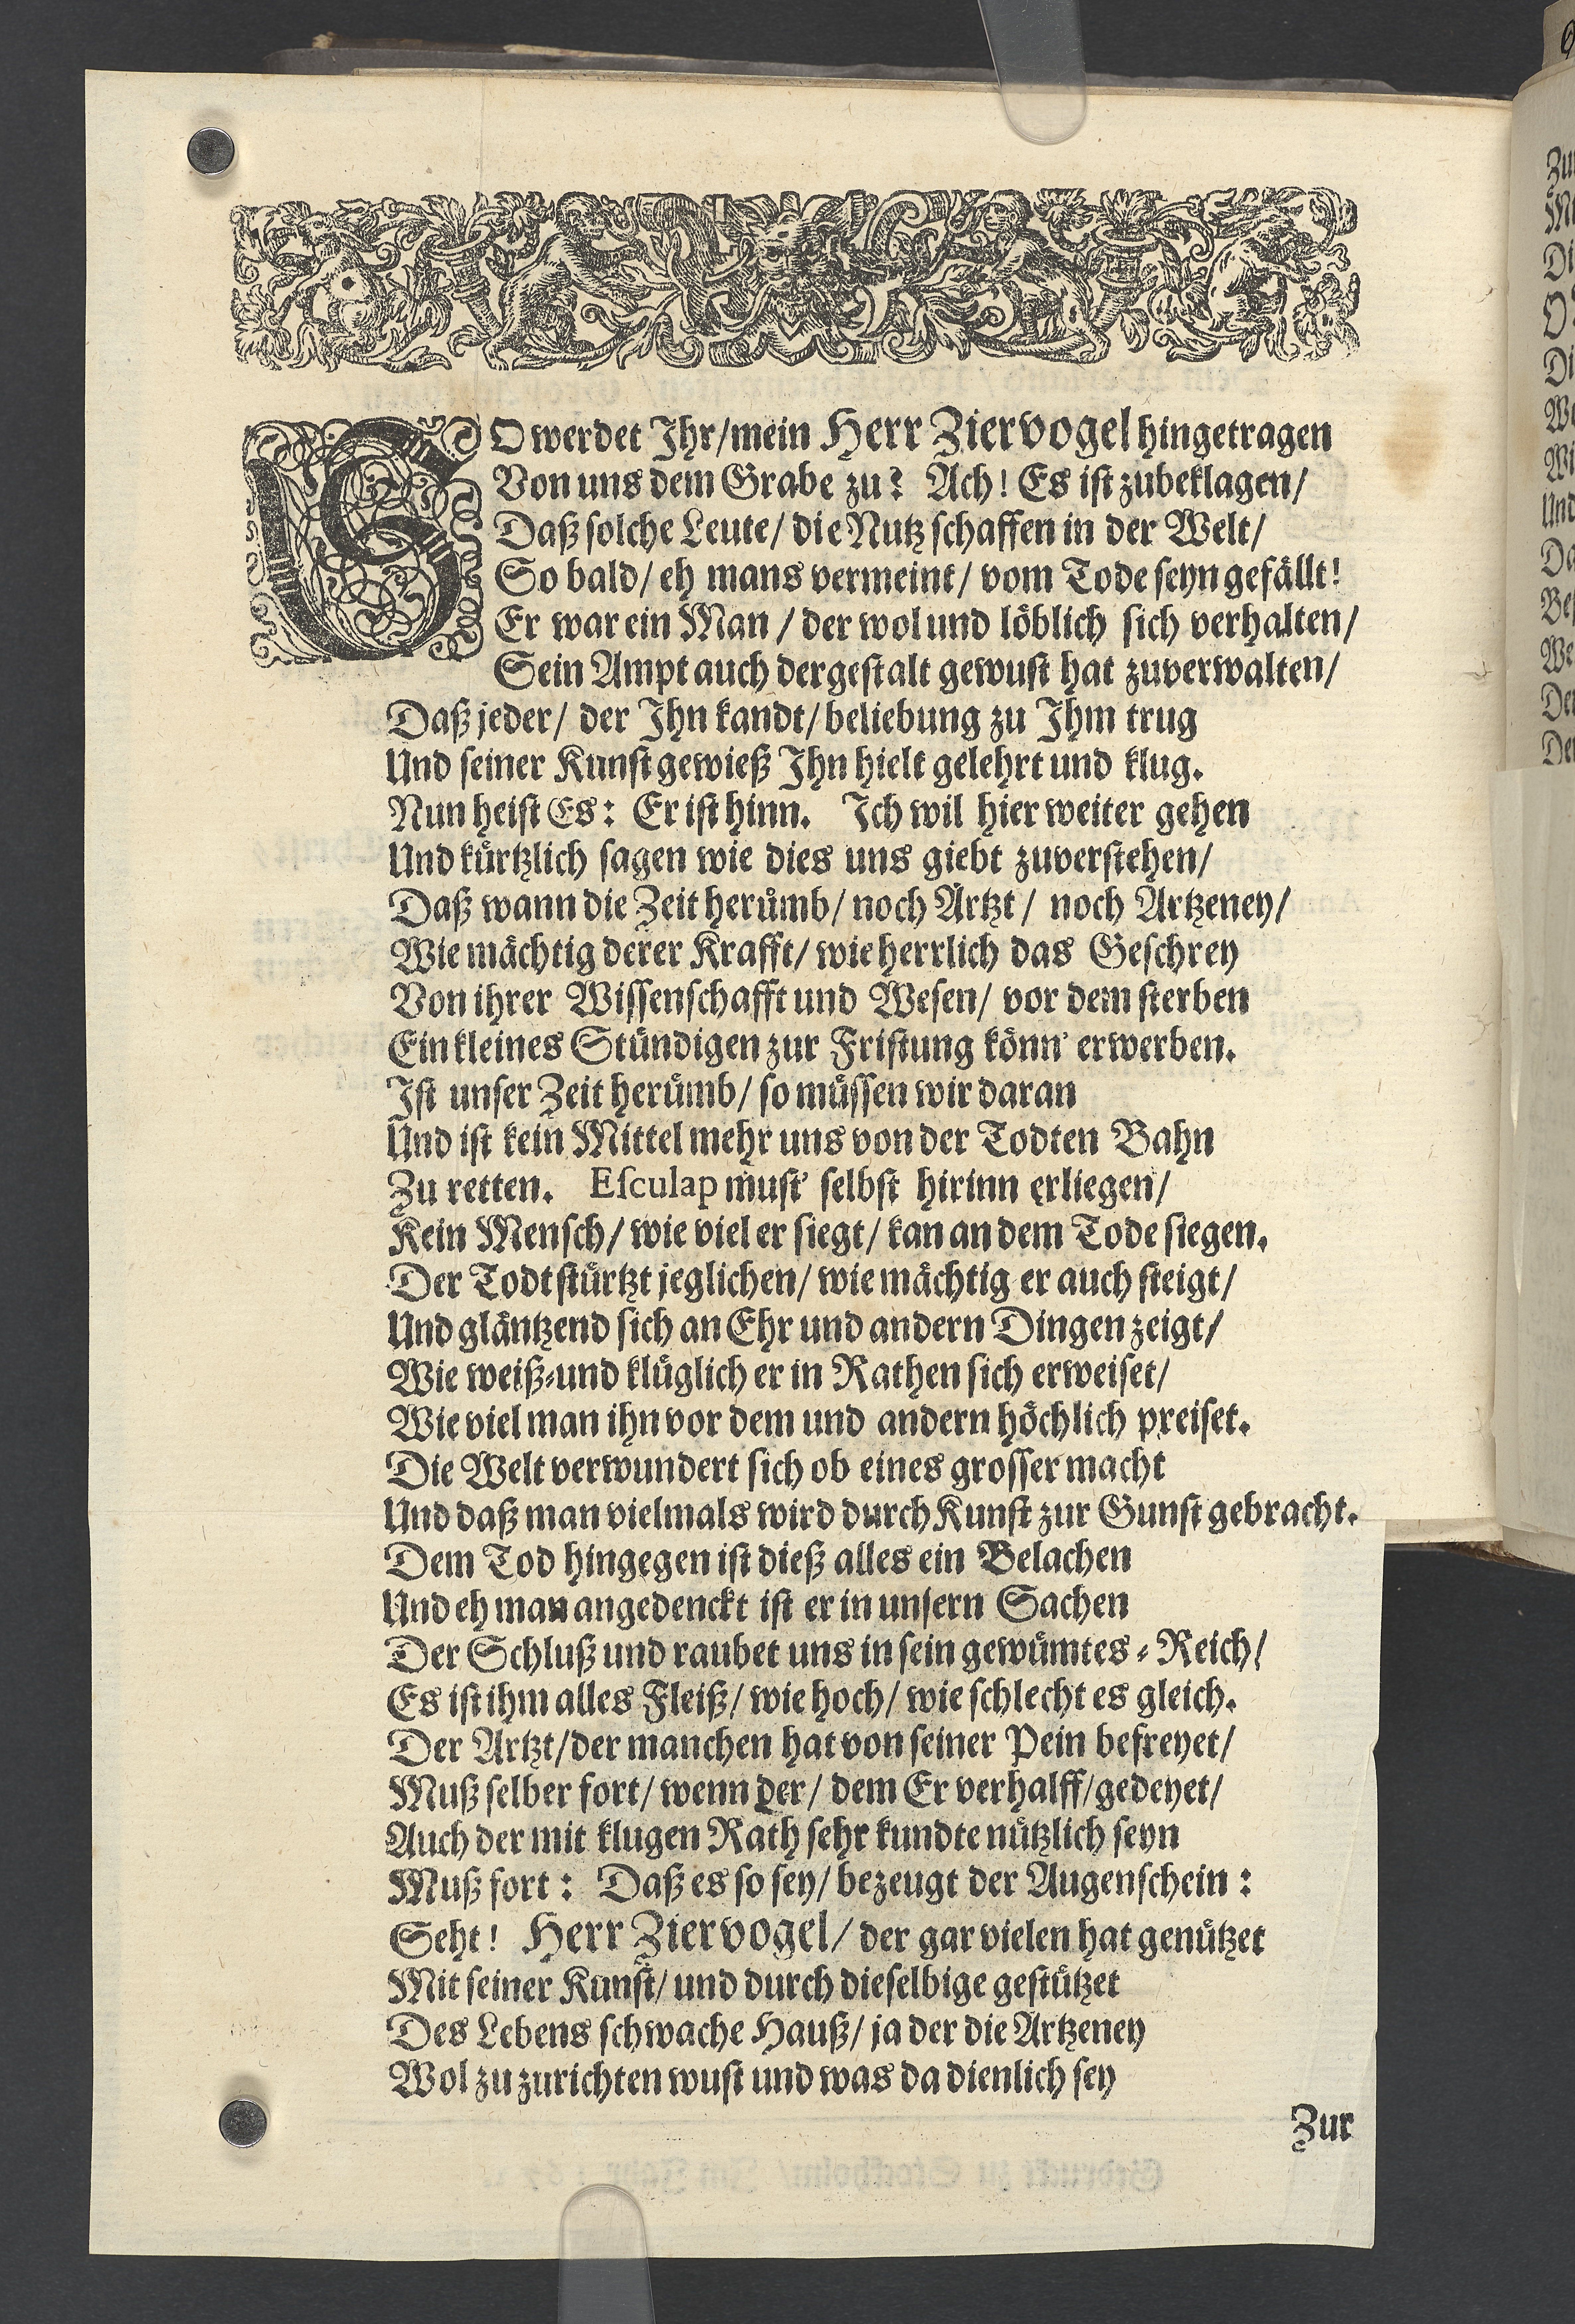 SO werdet Ihr/mein Herr Ziervogel hingetragen
Von uns dem Grabe zu? Ach! Es ist zubeklagen/
Daß solche Leute/ die Nutz schaffen in der Welt/
So bald/ eh mans vermeint/ vom Tode seyn gefällt!
Er war ein Man / der wol und löblich sich verhalten/
Sein Ampt auch dergestalt gewust hat zuverwalten/
Daß jeder/ der Ihn kandt/ beliebung zu Ihm trug
Und seiner Kunst gewieß Ihn hielt gelehrt und klug.
Nun heist Es: Er ist hinn. Ich wil hier weiter gehen
Und kürtzlich sagen wie dies uns giebt zuverstehen/
Daß wann die Zeit herümb/ noch Ärtzt/ noch Artzeney/
Wie mächtig derer Krafft/ wie herrlich das Geschrey
Von ihrer Wissenschafft und Wesen/ vor dem sterben
Ein kleines Stündigen zur Fristung könn' erwerben.
Ist unser Zeit herümb/ so müssen wir daran
Und ist kein Mittel mehr uns von der Todten Bahn
Zu retten. Esculap must' selbst hirinn erliegen/
Kein Mensch/ wie viel er siegt/ kan an dem Tode siegen.
Der Todt stürtzt jeglichen/ wie mächtig er auch steigt/
Und gläntzend sich an Ehr und andern Dingen zeigt/
Wie weiß-und klüglich er in Rathen sich erweiset/
Wie viel man ihn vor dem und andern höchlich preiset.
Die Welt verwundert sich ob eines grosser macht
Und daß man vielmals wird durch Kunst zur Gunst gebracht.
Dem Tod hingegen ist dieß alles ein Belachen
Und eh man angedenckt ist er in unsern Sachen
Der Schluß und raubet uns in sein gewümtes-Reich/
Es ist ihm alles Fleiß/ wie hoch/ wie schlecht es gleich.
Der Artzt/der manchen hat von seiner Pein befreyet/
Muß selber fort/ wenn der/ dem Er verhalff/gedeyet/
Auch der mit klugen Rath sehr kundte nützlich seyn
Muß fort: Daß es so sey/ bezeugt der Augenschein:
Seht! Herr Ziervogel/ der gar vielen hat genützet
Mit seiner Kunst/ und durch dieselbige gestützet
Des Lebens schwache Hauß/ ja der die Artzeney
Wol zu zurichten wust und was da dienlich sey
Zur